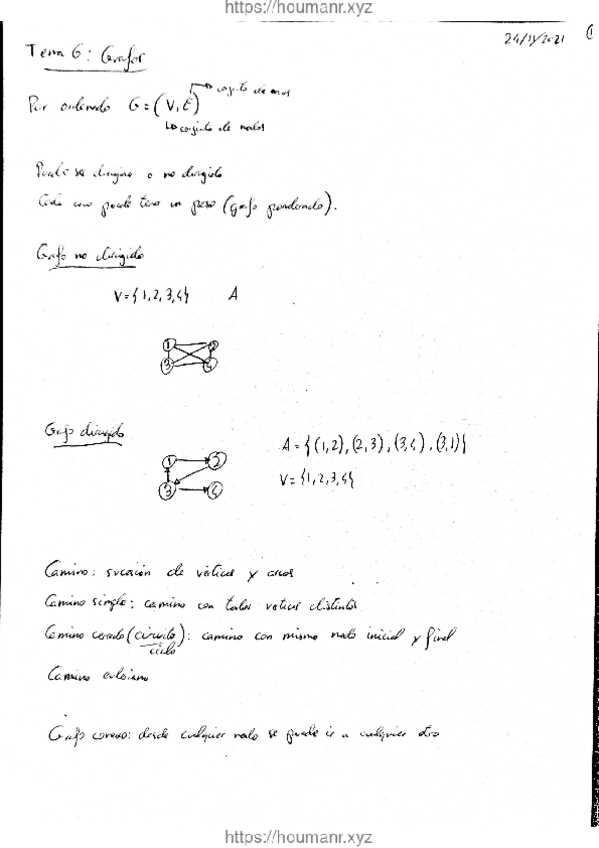 https://houmanr.xyz
24/11/2021 1
Tema 6: Grafos
Par ordenado G=(V,E) conjunto de arcos
conjunto de nodos
Puede ser dirigido o no dirigido
Cada arco puede tener un peso (grafo ponderado).
Grafo no dirigido
V={1,2,3,4} A
1 2
3 4
Grafo dirigido
A={(1,2),(2,3),(3,4),(3,1)}
V={1,2,3,4}
1 2
3 4
Camino: sucesión de vértices y arcos
Camino simple: camino con todos vertices distintos
Camino cerado (circuito): camino con mismo nodo inicial y final
ciclo
Camino euleriano
Grafo conexo: desde cualquier nodo se puede ir a cualquier otro
https://houmanr.xyz